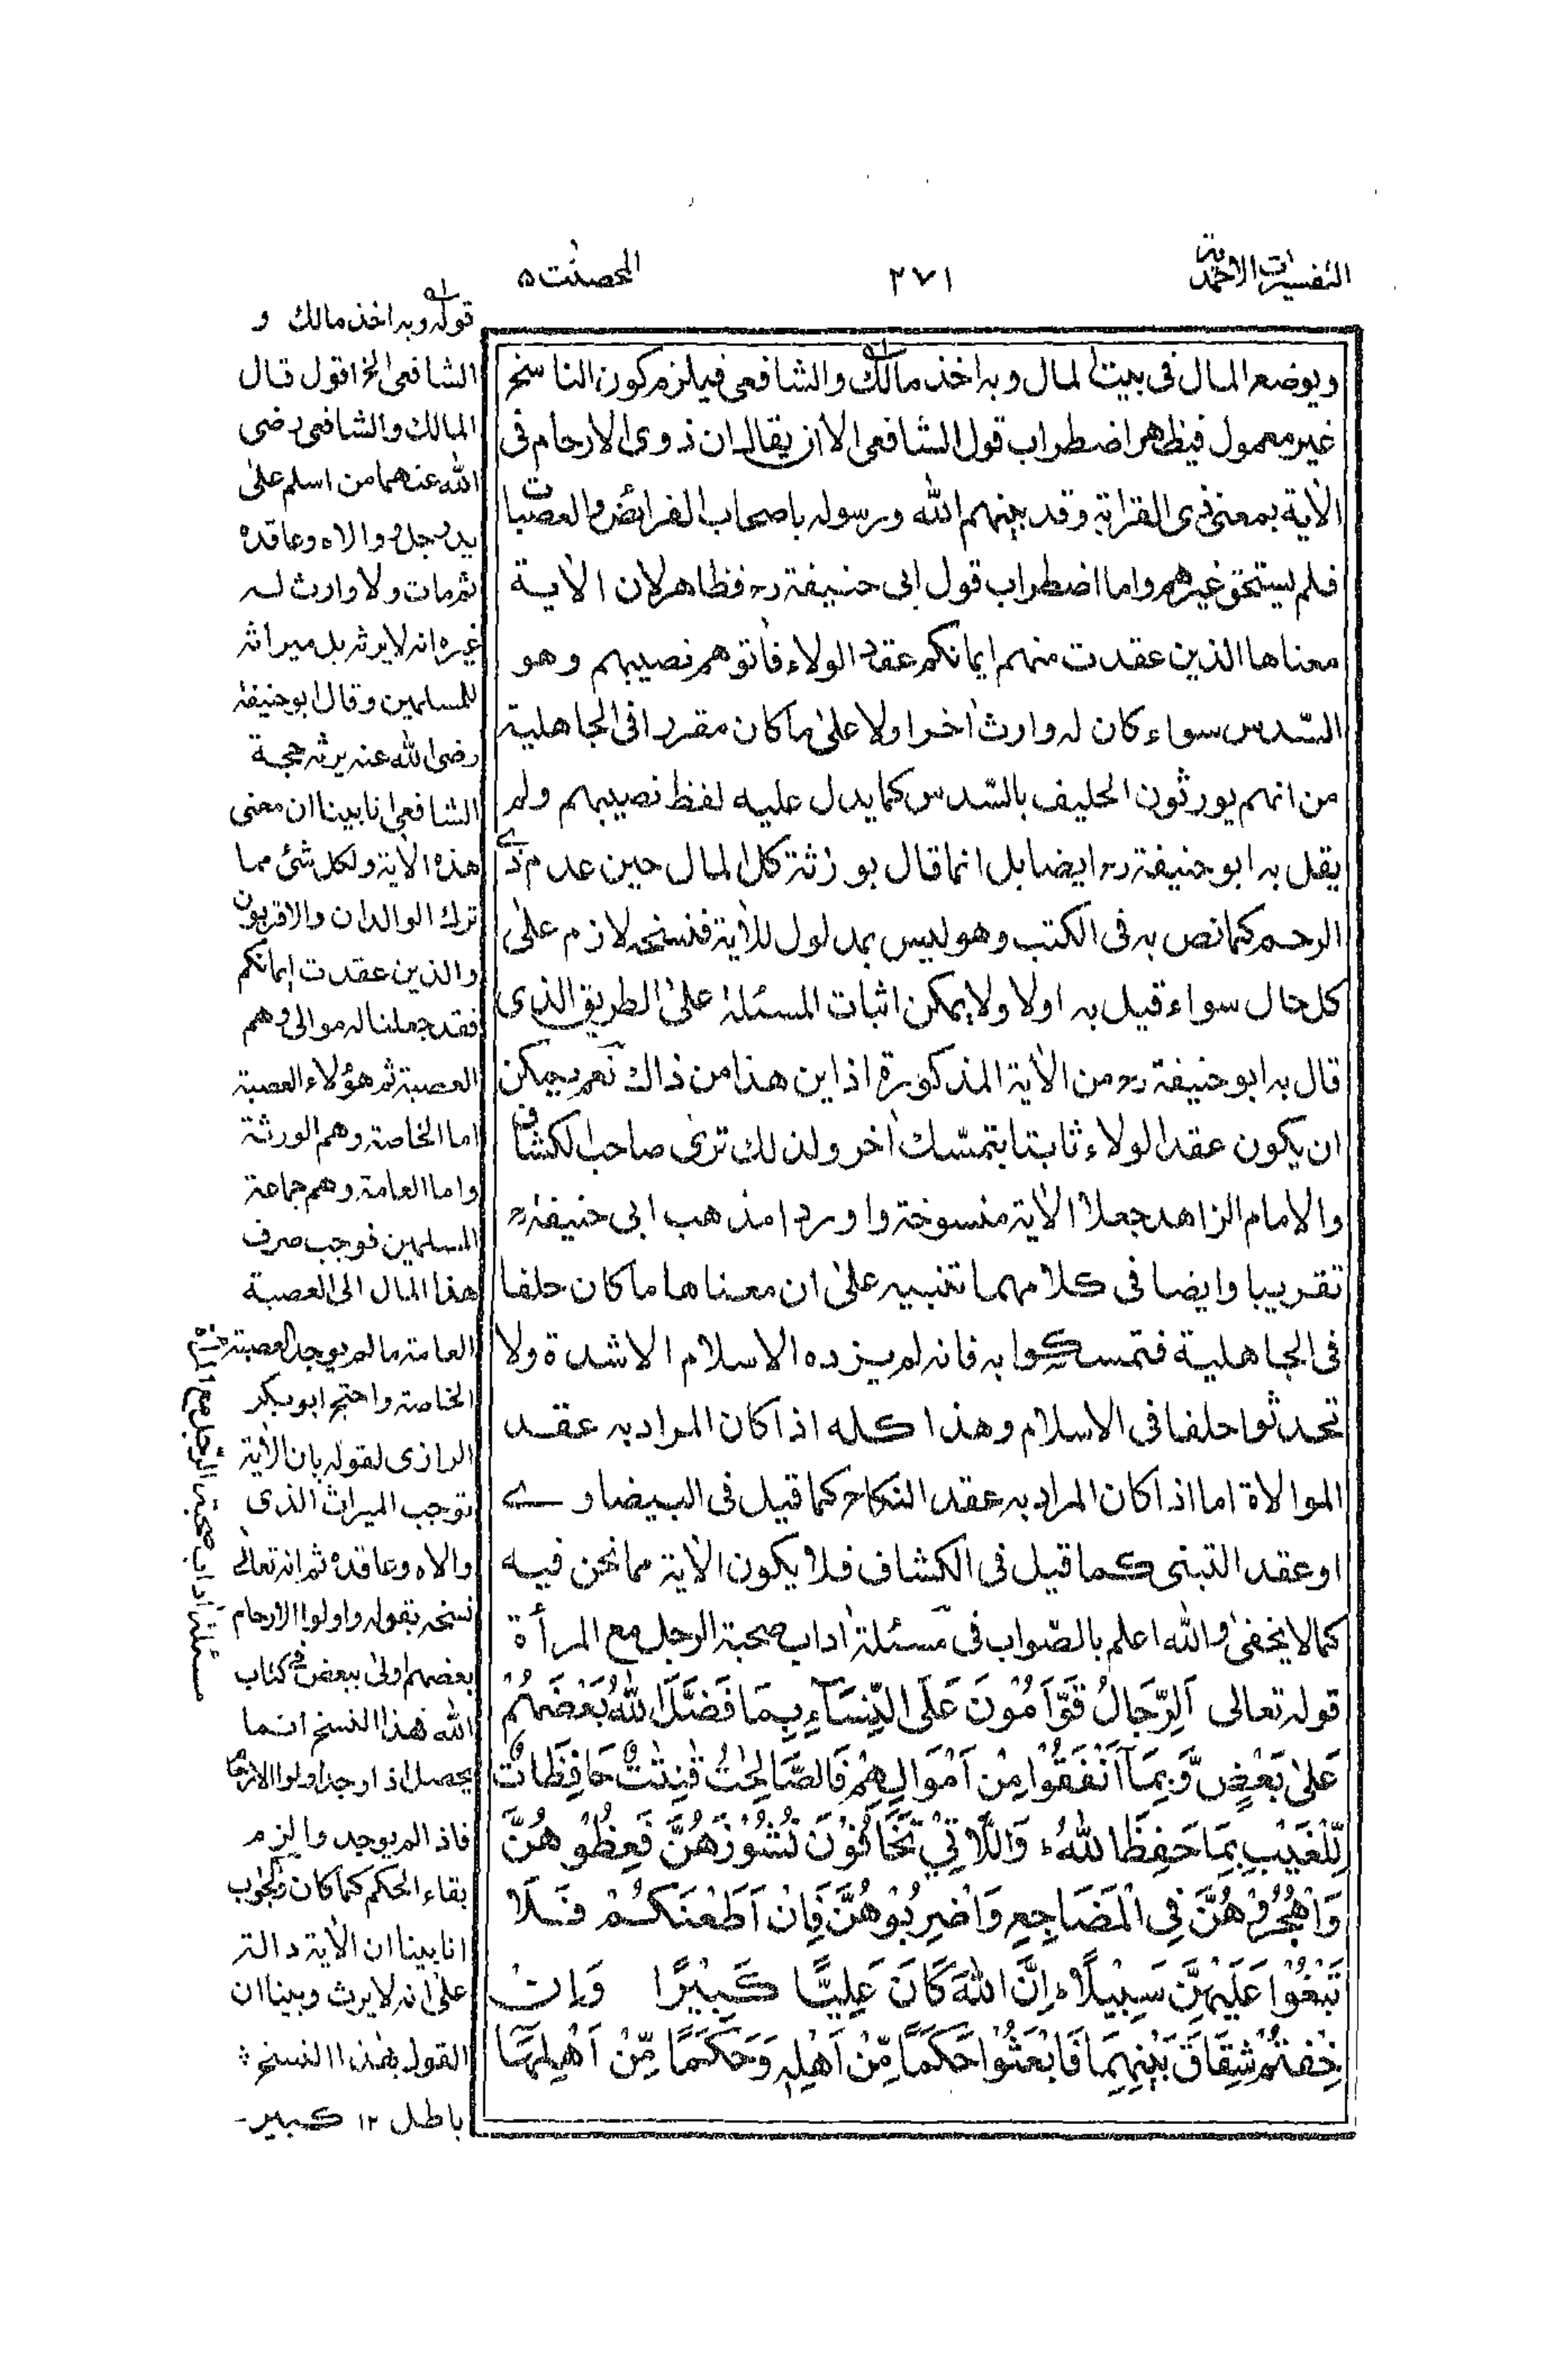 التفسيرات الاحمدية
٢٧١
المحصنٰت ٥
ويوضع المال فى بيت المال وبه اخذ مالك والشافعى فيلزم كون الناسخ
غير معمول فيظهر اضطراب قول الشافعى الا ان يقال ان ذوى الارحام فى
الاٰية بمعنى ذى القرابة وقد بينهم الله ورسوله باصحاب الفرائض والعصبات
فلم يستحق غيرهم واما اضطراب قول ابى حنيفة رح فظاهر لان الاٰية
معناها الذين عقدت منهم ايمانكم عقد الولاء فاٰتوهم نصيبهم وهو
السّدس سواء كان له وارث اٰخر اولا علىٰ ما كان مقررا فى الجاهلية
من انهم يورثون الحليف بالسّدس كما يدل عليه لفظ نصيبهم ولم
يقل به ابو حنيفة رح ايضا بل انما قال بوراثة كل المال حين عدم ذى
الرحم كما نص به فى الكتب وهو ليس بمدلول للاٰية فنسخه لازم علىٰ
كل حال سواء قيل به اولا ولا يمكن اثبات المسئلة علىٰ الطريق الذى
قال به ابو حنيفة رح من الاٰية المذكورة اذ اين هذا من ذاك نعم يمكن
ان يكون عقد الولاء ثابتا بتمسّك اٰخر ولذلك ترى صاحب الكشاف
والامام الزاهد جعلا الاٰية منسوخة واوردا مذهب ابى حنيفة رح
تقريبا وايضا فى كلامهما تنبيه علىٰ ان معناها ما كان حلفا
فى الجاهلية فتمسكوا به فانه لم يزده الاسلام الا شدة ولا
تحدثوا حلفا فى الاسلام وهذا كله اذا كان المراد به عقد
الموالاة اما اذا كان المراد به عقد النكاح كما قيل فى البيضاوى
او عقد التبنى كما قيل فى الكشاف فلا يكون الاٰية مما نحن فيه
كما لا يخفىٰ والله اعلم بالصّواب فى مسئلة اٰداب صحبة الرجل مع المرأة
قوله تعالى اَلرِّجَالُ قَوَّامُوْنَ عَلَى النِّسَآءِ بِمَا فَضَّلَ اللّٰهُ بَعْضَهُمْ
عَلىٰ بَعْضٍ وَّبِمَآ اَنْفَقُوْا مِنْ اَمْوَالِهِمْ فَالصَّالِحٰتُ قٰنِتٰتٌ حَافِظَاتٌ
لِّلْغَيْبِ بِمَا حَفِظَ اللّٰهُ ؕ وَاللَّاتِيْ تَخَافُوْنَ نُشُوْزَهُنَّ فَعِظُوْهُنَّ
وَاهْجُرُوْهُنَّ فِى الْمَضَاجِعِ وَاضْرِبُوْهُنَّ فَاِنْ اَطَعْنَكُمْ فَلَا
تَبْغُوْا عَلَيْهِنَّ سَبِيْلًا ؕ اِنَّ اللّٰهَ كَانَ عَلِيًّا كَبِيْرًا وَاِنْ
خِفْتُمْ شِقَاقَ بَيْنِهِمَا فَابْعَثُوْا حَكَمًا مِّنْ اَهْلِهٖ وَحَكَمًا مِّنْ اَهْلِهَا
قوله وبه اخذ مالك و
الشافعى الخ اقول قال
المالك والشافعى رضى
الله عنهما من اسلم علىٰ
يد رجل ووالاه وعاقده
ثم مات ولا وارث له
غيره انه لا يرثه بل ميراثه
للمسلمين وقال ابو حنيفة
رضى الله عنه يرثه حجة
الشافعى انا بينا ان معنى
هذه الاٰية ولكل شئ مما
ترك الوالدان والاقربون
والذين عقدت ايمانكم
فقد جعلنا له موالى وهم
العصبة ثم هؤلاء العصبة
اما الخاصة وهم الورثة
واما العامة وهم جماعة
المسلمين فوجب صرف
هذا المال الى العصبة
العامة ما لم يوجد العصبة
الخاصة واحتج ابو بكر
الرازى لقوله بان الاٰية
توجب الميراث الذى
والاه وعاقده ثم انه تعالىٰ
نسخه بقوله واولوا الارحام
بعضهم اولىٰ ببعض فى كتاب
الله فهذا النسخ انما
يحصل اذا وجد اولوا الارحام
فاذا لم يوجد والزم
بقاء الحكم كما كان والجواب
انا بينا ان الاٰية دالة
علىٰ انه لا يرث وبينا ان
القول بهذا النسخ
باطل ١٢ كبير-
مسئلة اٰداب صحبة الرجل مع المرأة